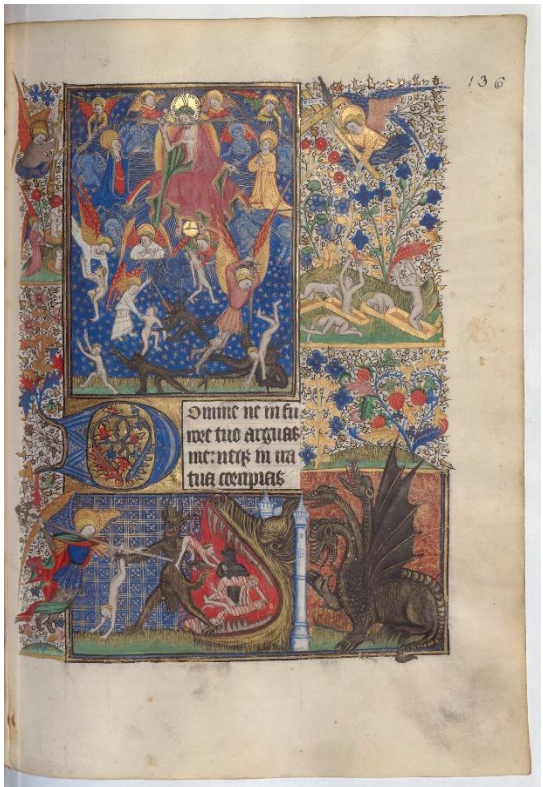 136
Domine ne in fu
rore tuo arguas
me: neqz in ira
tua corripias